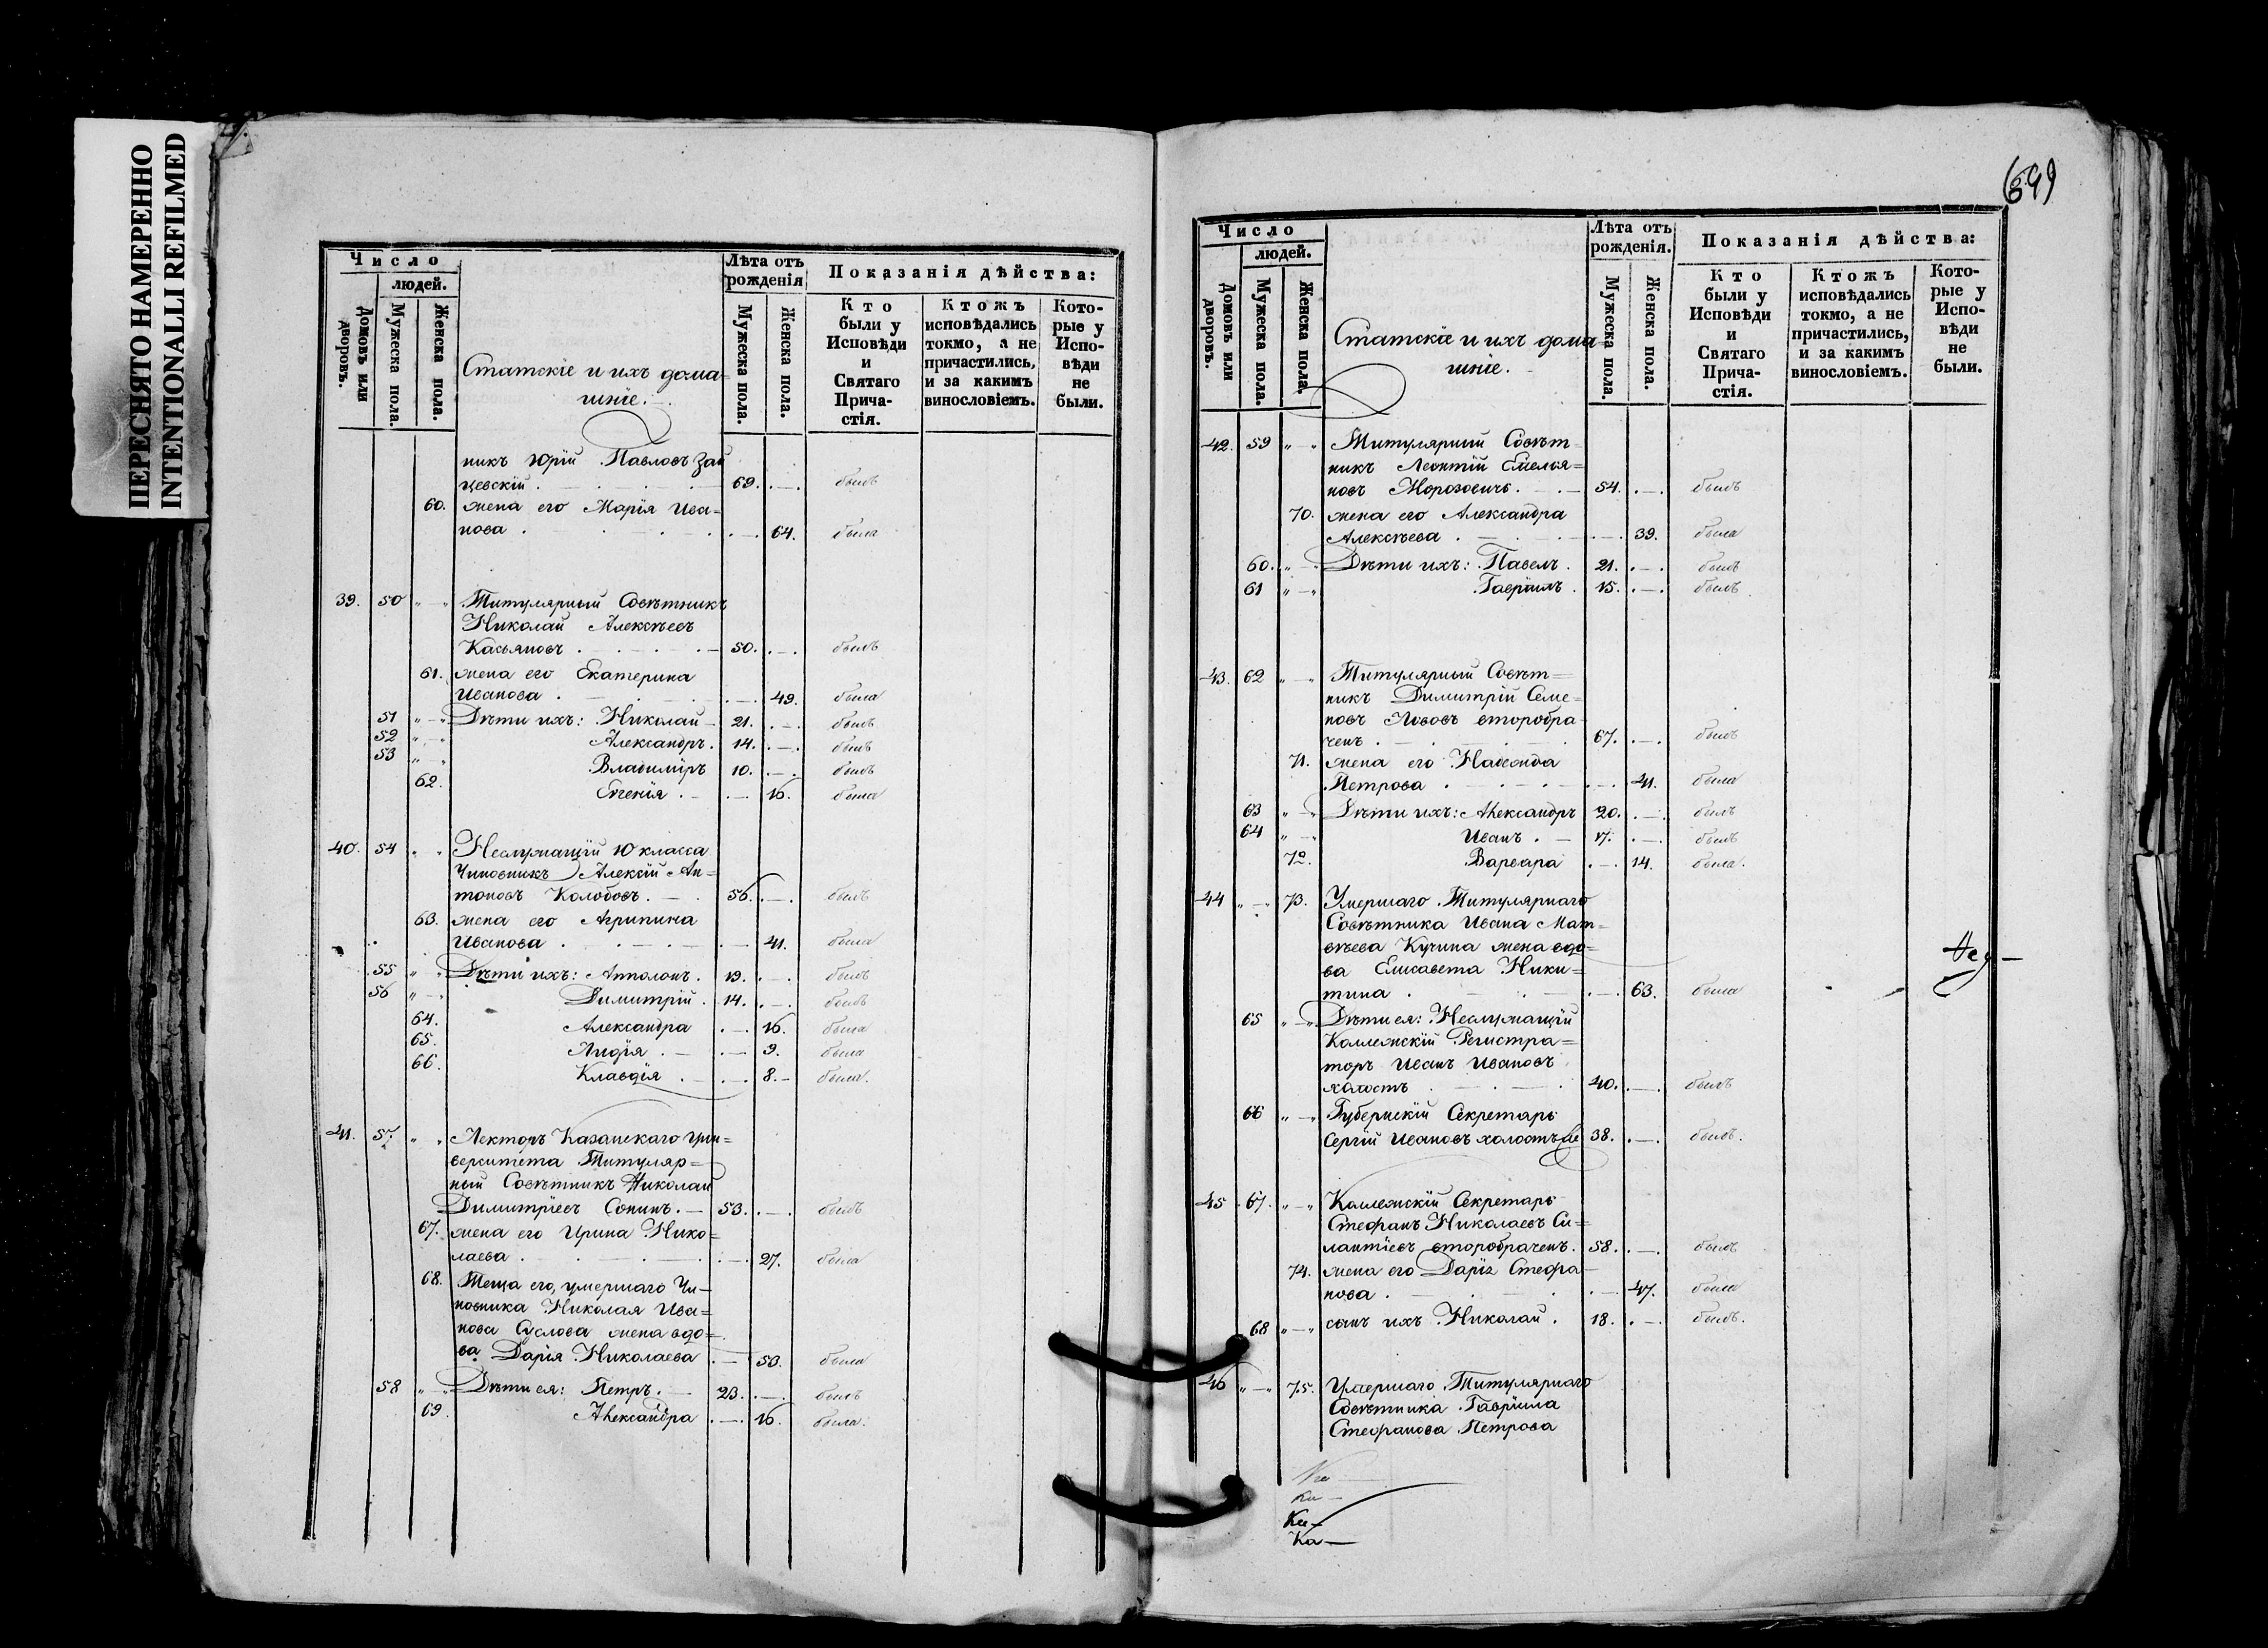 ПЕРЕСНЯТО НАМЕРЕННО
INTENTIONALLI REFILMED
Число
людей.
Домовъ или дворовъ.
Мужеска пола.
Женска пола.
Статскіе и ихъ дома=
шніе.
Лѣта отъ
рожденія
Мужеска пола.
Женска пола.
Показанія дѣйства:
Кто
были у
Исповѣди
и
Святаго
Прича-
стія.
Ктожъ
исповѣдались
токмо, а не
причастились,
и за какимъ
винословіемъ.
Кото-
рые у
Испо-
вѣди
не
были.
никъ Юрій Павловъ Зай
цевскій . 69. былъ
60. жена его Марія Ива=
нова . 64. была
39. 50 " " Титулярный Совѣтникъ
Николай Алексѣевъ
Касьяновъ . 50. былъ
61. жена его Екатерина
Иванова . 49. была
51 " " Дѣти ихъ: Николай 21. былъ
52 " " Александръ. 14. былъ
53 " " Владиміръ 10. былъ
62. Евгенія . 16. была
40. 54 " " Неслужащій 10 класса
Чиновникъ Алексій Ан=
тоновъ Колобовъ. 56. былъ
63. жена его Агрипина
Иванова . 41. была
55 " " Дѣти ихъ: Апполонъ. 19. былъ
56 " " Димитрій. 14. былъ
64. Александра 16. была
65. Лидія . 9. была
66. Клавдія . 8. была.
41. 57. " " Лекторъ Казанскаго Уни=
верситета Титуляр=
ный Совѣтникъ Николай
Димитріевъ Сонинъ. 53. былъ
67. жена его Ирина Нико=
лаева . 27. была
68. Теща его, умершаго Чи=
новника Николая Ива=
нова Суслова жена вдо=
ва Дарія Николаева 50. была
58 " " Дѣти ея: Петръ. 23. былъ
69. Александра 16. была.
699
Число
людей.
Домовъ или дворовъ.
Мужеска пола.
Женска пола.
Статскіе и ихъ дома
шніе.
Лѣта отъ
рожденія.
Мужеска пола.
Женска пола.
Показанія дѣйства:
Кто
были у
Исповѣди
и
Святаго
Прича-
стія.
Ктожъ
исповѣдались
токмо, а не
причастились,
и за какимъ
винословіемъ.
Кото-
рые у
Испо-
вѣди
не
были.
42. 59 " " Титулярный Совѣт=
никъ Леонтій Емелья=
новъ Морозовичъ. 54. былъ
70. жена его Александра
Алексѣева . 39. была
60. " " Дѣти ихъ: Павелъ. 21. былъ
61 " " Гавріилъ . 15. былъ.
43. 62 " " Титулярный Совѣт=
никъ Димитрій Семе=
новъ Львовъ второбра
ченъ . 67. былъ
71. жена его Надежда
Петрова . 41. была
63 " " Дѣти ихъ: Александръ 20. былъ
64 " " Иванъ . 17. былъ
72. Варвара 14. была.
44 " " 73. Умершаго Титулярнаго
Совѣтника Ивана Мат=
вѣева Кучина жена вдо=
ва Елисавета Ники=
тина . 63. была
65 " " Дѣти ея: Неслужащій
Коллежскій Регистра=
торъ Иванъ Ивановъ
холостъ . 40. былъ
66 " " Губернскій Секретарь
Сергій Ивановъ холостъ же 38. былъ.
45 67. " " Коллежскій Секретарь
Стефанъ Николаевъ Си=
лантіевъ второбраченъ. 58. былъ
74. жена его Дарія Стефа
нова . 47. была
68 " " сынъ ихъ Николай. 18. былъ.
46 " " 75. Умершаго Титулярнаго
Совѣтника Гавріила
Стефанова Петрова